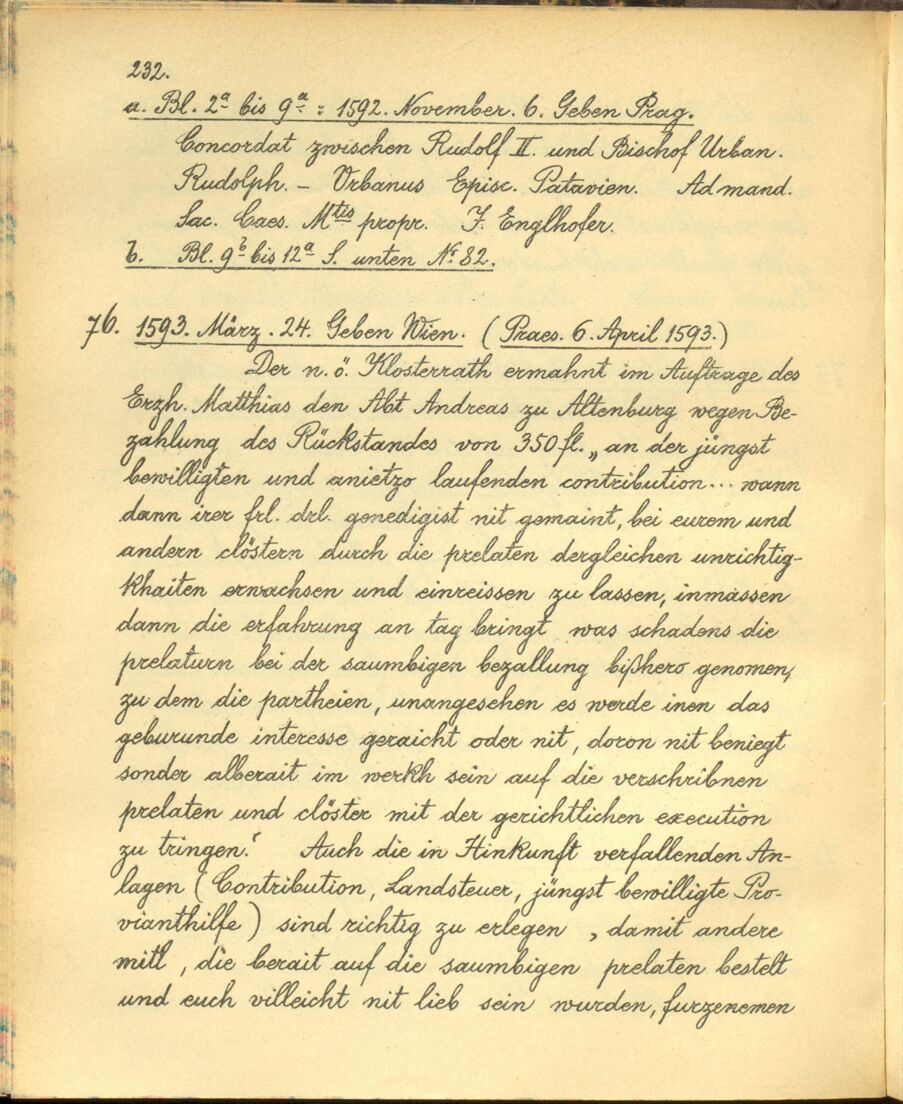 232.
a. Bl. 2ª bis 9ª : 1592. November. 6. Geben Prag.
Concordat zwischen Rudolf II. und Bischof Urban.
Rudolph. – Vrbanus Episc. Patavien. Ad mand.
Sac. Caes. Mtis propr. J. Englhofer.
b. Bl. 9b bis 12ª S. unten Nº 82.
76. 1593. März. 24. Geben Wien. (Praes. 6. April 1593.)
Der n. ö. Klosterrath ermahnt im Auftrage des
Erzh. Matthias den Abt Andreas zu Altenburg wegen Be-
zahlung des Rückstandes von 350 fl. „an der jüngst
bewilligten und anietzo laufenden contribution... wann
dann irer frl. drl. genedigist nit gemaint, bei eurem und
andern clöstern durch die prelaten dergleichen unrichtig-
khaiten erwachsen und einreissen zu lassen, inmassen
dann die erfahrung an tag bringt was schadens die
prelaturn bei der saumbigen bezallung bißhero genomen,
zu dem die partheien, unangesehen es werde inen das
geburunde interesse geraicht oder nit, doron nit beniegt
sonder alberait im werkh sein auf die verschribnen
prelaten und clöster mit der gerichtlichen execution
zu tringen.“ Auch die in Hinkunft verfallenden An-
lagen (Contribution, Landsteuer, jüngst bewilligte Pro-
vianthilfe) sind richtig zu erlegen „damit andere
mitl, die berait auf die saumbigen prelaten bestelt
und euch villeicht nit lieb sein wurden, furzenemen